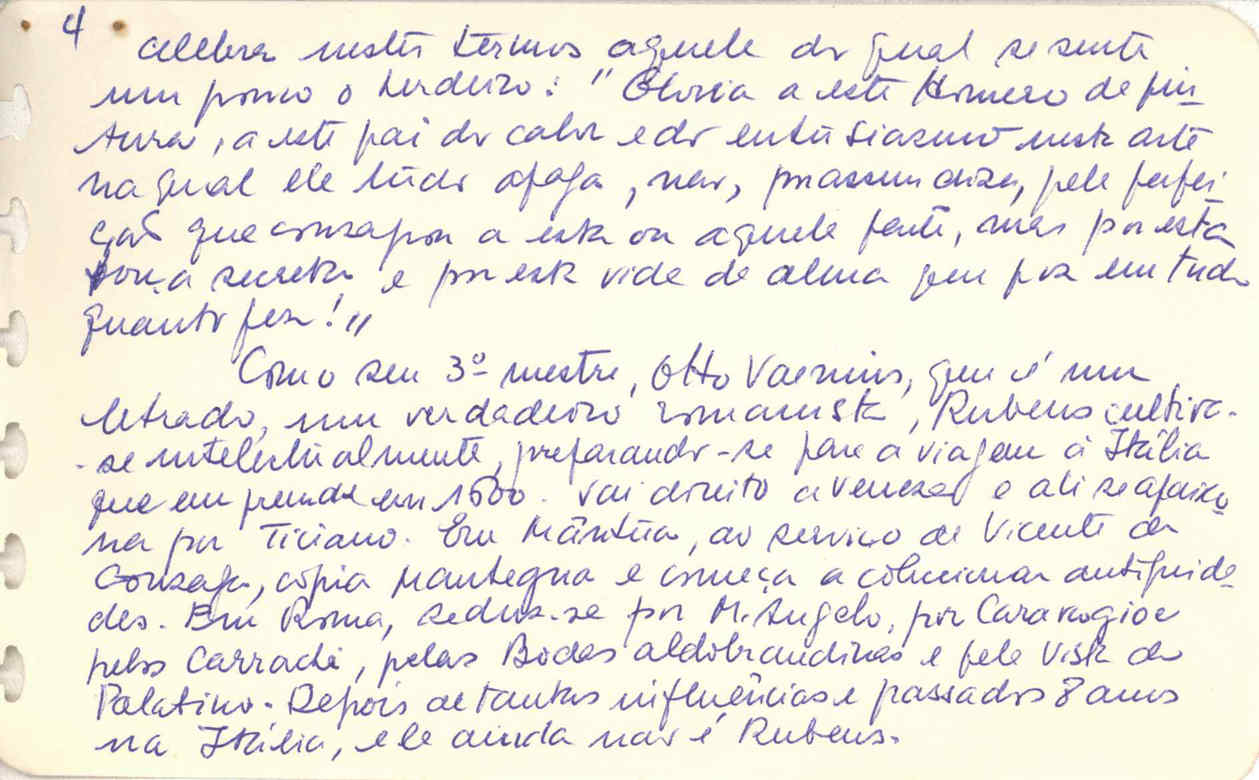 4
celebra nestes termos aquele do qual se sente
um pouco o herdeiro: "Gloria a este Homero de pin
tura, a este pai do calor e do entusiasmo nesta arte
na qual ele tudo apaga, não, por assim dizer, pela perfei
ção que consagrou a esta ou aquele parte, mas por esta
força secreta e por esta vida de alma que pos em tudo
quanto fez!"
Como seu 3º mestre, Otto Vaenius, que é um
letrado, um verdadeiro romanista, Rubens cultiva-
-se intelectualmente, preparando-se para a viagem à Itália
que emprende em 1600. Vai direito a Veneza e ali se apaixo
na por Ticiano. Em Mântua, ao serviço de Vicente de
Gonzaga, copia Mantegna e começa a coleccionar antiguida
des. Em Roma, seduz-se por M. Angelo, por Caravagio e
pelos Carrachi, pelas Bodas aldobrandinas e pela Vista do
Palatino. Depois de tantas influências e passados 8 anos
na Itália, ele ainda não é Rubens.